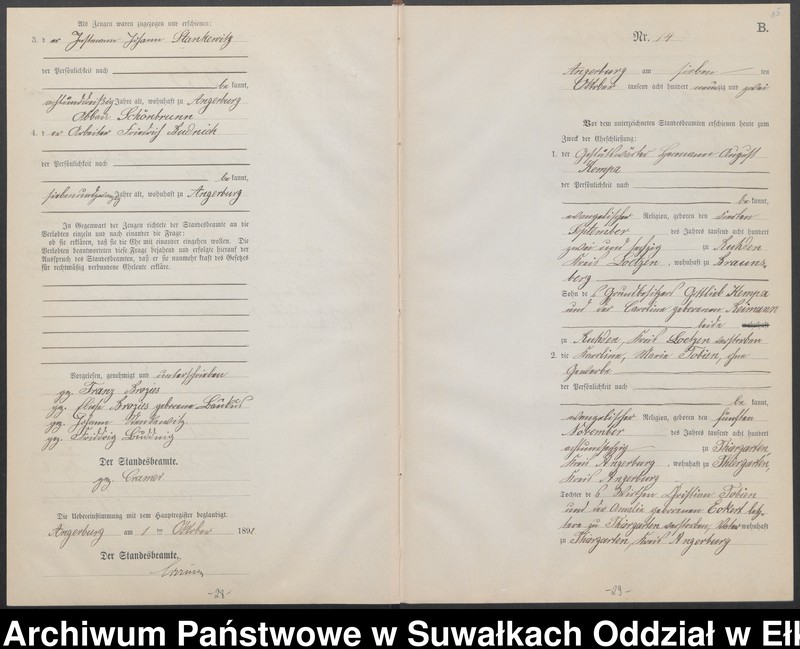 Als Zeugen waren zugezogen und erschienen:
3. der Instmann Johann Stankewitz
der Persönlichkeit nach
be kannt,
achtunddreißig Jahre alt, wohnhaft zu Angerburg
Abbau Schönbrunn
4. der Arbeiter Friedrich Budnich
der Persönlichkeit nach
be kannt,
siebenundzwanzig Jahre alt, wohnhaft zu Angerburg
In Gegenwart der Zeugen richtete der Standesbeamte an die
Verlobten einzeln und nach einander die Frage:
ob sie erklären, daß sie die Ehe mit einander eingehen wollen. Die
Verlobten beantworteten diese Frage bejahend und erfolgte hierauf der
Ausspruch des Standesbeamten, daß er sie nunmehr kraft des Gesetzes
für rechtmäßig verbundene Eheleute erkläre.
Vorgelesen, genehmigt und unterschrieben
gez. Franz Brozus
gez. Brozus geborene
gez. Johann Stankewitz
gez. Friedrich
Der Standesbeamte.
gez. Cramer
Die Uebereinstimmung mit dem Hauptregister beglaubigt.
Angerburg am 1 ten Oktober 189
Der Standesbeamte.
-28-
B.
Nr. 14
Angerburg am sieben ten
Oktober tausend acht hundert neunzig und zwei
Vor dem unterzeichneten Standesbeamten erschienen heute zum
Zweck der Eheschließung:
1. der Gestütwärter Hermann August
Kempa
der Persönlichkeit nach
be kannt,
evangelischer Religion, geboren den vierten
September des Jahres tausend acht hundert
zwei und sechzig zu Ruhden
Kreis Loetzen, wohnhaft zu Brauns-
berg
Sohn des Grundbesitzers Gottlieb Kempa
und der Caroline geborenen Reimann
beide wohnhaft
zu Ruhden, Kreis Loetzen verstorben
2. die Karoline, Maria Tobien, ohne
Gewerbe
der Persönlichkeit nach
be kannt,
evangelischer Religion, geboren den fünften
November des Jahres tausend acht hundert
achtundsechzig zu Thiergarten
Kreis Angerburg, wohnhaft zu Thiergarten,
Kreis Angerburg
Tochter des Wirthen Christian Tobien
und der Amalie geborenen Eckert letz-
tere zu Thiergarten verstorben, Vater wohnhaft
zu Thiergarten, Kreis Angerburg
-29-
Archiwum Państwowe w Suwałkach Oddział w Eł